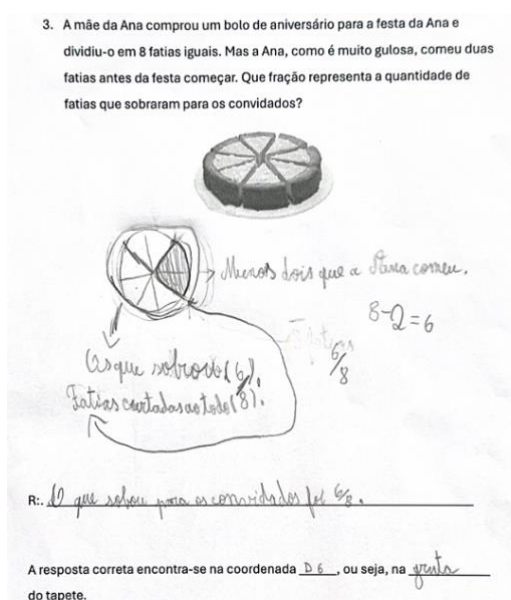 3. A mãe da Ana comprou um bolo de aniversário para a festa da Ana e
dividiu-o em 8 fatias iguais. Mas a Ana, como é muito gulosa, comeu duas
fatias antes da festa começar. Que fração representa a quantidade de
fatias que sobraram para os convidados?
Menos dois que a Ana comeu.
8-2=6
6/8
As que sobrou (6).
Fatias cortadas ao todo (8).
R:. O que sobou para os convidados foi 6/8.
A resposta correta encontra-se na coordenada D6, ou seja, na
do tapete.